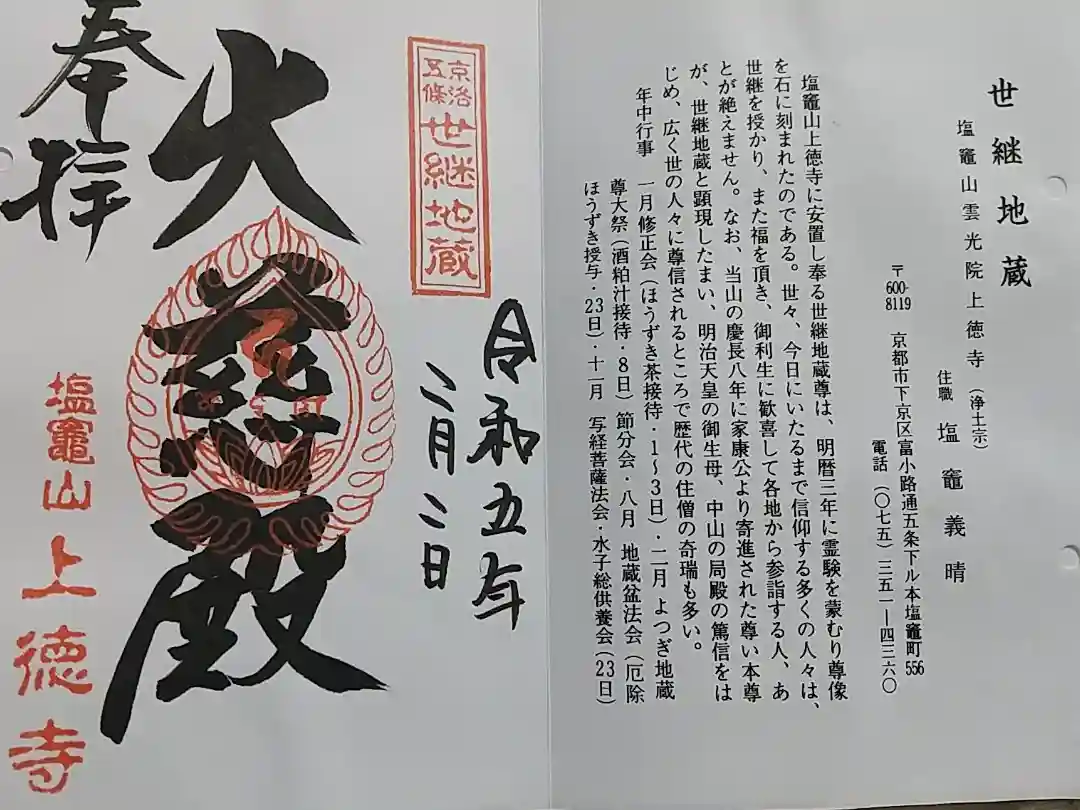 世継地蔵
塩竈山雲光院上徳寺(浄土宗)
住職 塩竈義晴
〒600-8119 京都市下京区富小路通五条下ル本塩竈町556
電話(〇七五)三五一―四三六〇
塩竈山上徳寺に安置し奉る世継地蔵尊は、明暦三年に霊験を蒙むり尊像
を石に刻まれたのである。世々、今日にいたるまで信仰する多くの人々は、
世継を授かり、また福を頂き、御利生に歓喜して各地から参詣する人、あ
とが絶えません。なお、当山の慶長八年に家康公より寄進された尊い本尊
が、世継地蔵と顕現したまい、明治天皇の御生母、中山の局殿の篤信をは
じめ、広く世の人々に尊信されるところで歴代の住僧の奇瑞も多い。
年中行事 一月修正会(ほうずき茶接待・1~3日)・二月よつぎ地蔵
尊大祭(酒粕汁接待・8日)節分会・八月 地蔵盆法会(厄除
ほうずき授与・23日)・十一月 写経菩薩法会・水子総供養会(23日)
令和五年
二月二日
京洛
五條
世継地蔵
大慈殿
奉拝
塩竈山上徳寺